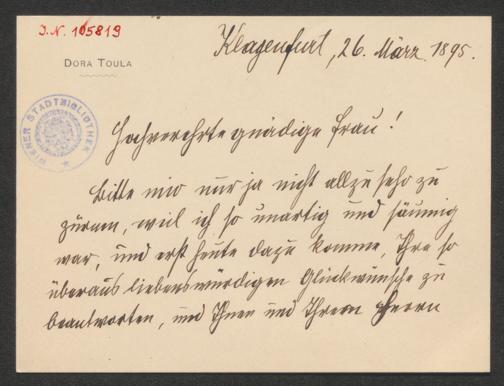 J.N. 105819
Klagenfurt, 26. März 1895.
DORA TOULA
WIENER STADTBIBLIOTHEK
Hochverehrte gnädige Frau!
Bitte mir nur ja nicht allzusehr zu
zürnen, weil ich so unartig und säumig
war, und erst heute dazu komme, Ihre so
überaus liebenswürdigen Glückwünsche zu
beantworten, und Ihnen und Ihrem Herrn